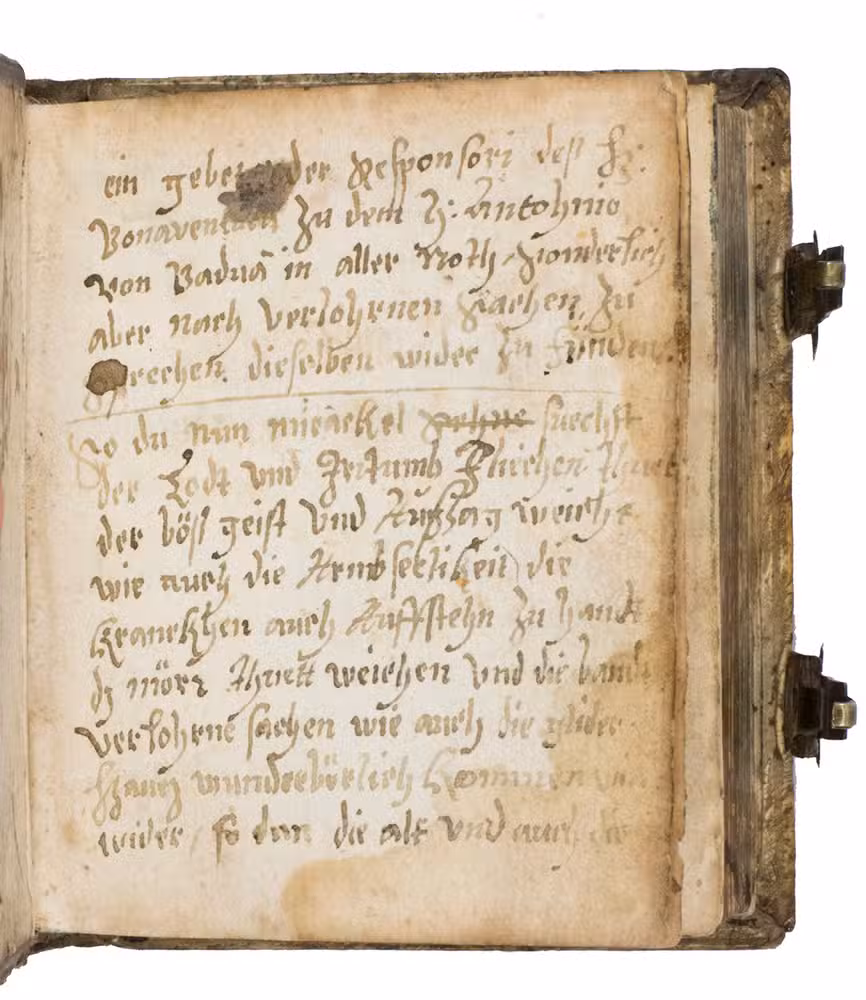 ein gebett oder Responsori deß H:
Bonaventura zu dem H: Antohnio
von Baduā in aller Noth, sonderlich
aber nach verlohrnen sachen, zu
sprechen. dieselben wider zu fünden.
So du nun mirackel suechst
der Todt und Irtumb Fliechen Thuet
der böß geist und Außsaz weicht
wie auch die Armbseelikeit die
kranckhen auch Auffstehn zu handt
dz mörr Thuett weichen und die bandt
verlohrne sachen wie auch die glider
wunderbörlich kommen
wider, so dan die alt und auch die